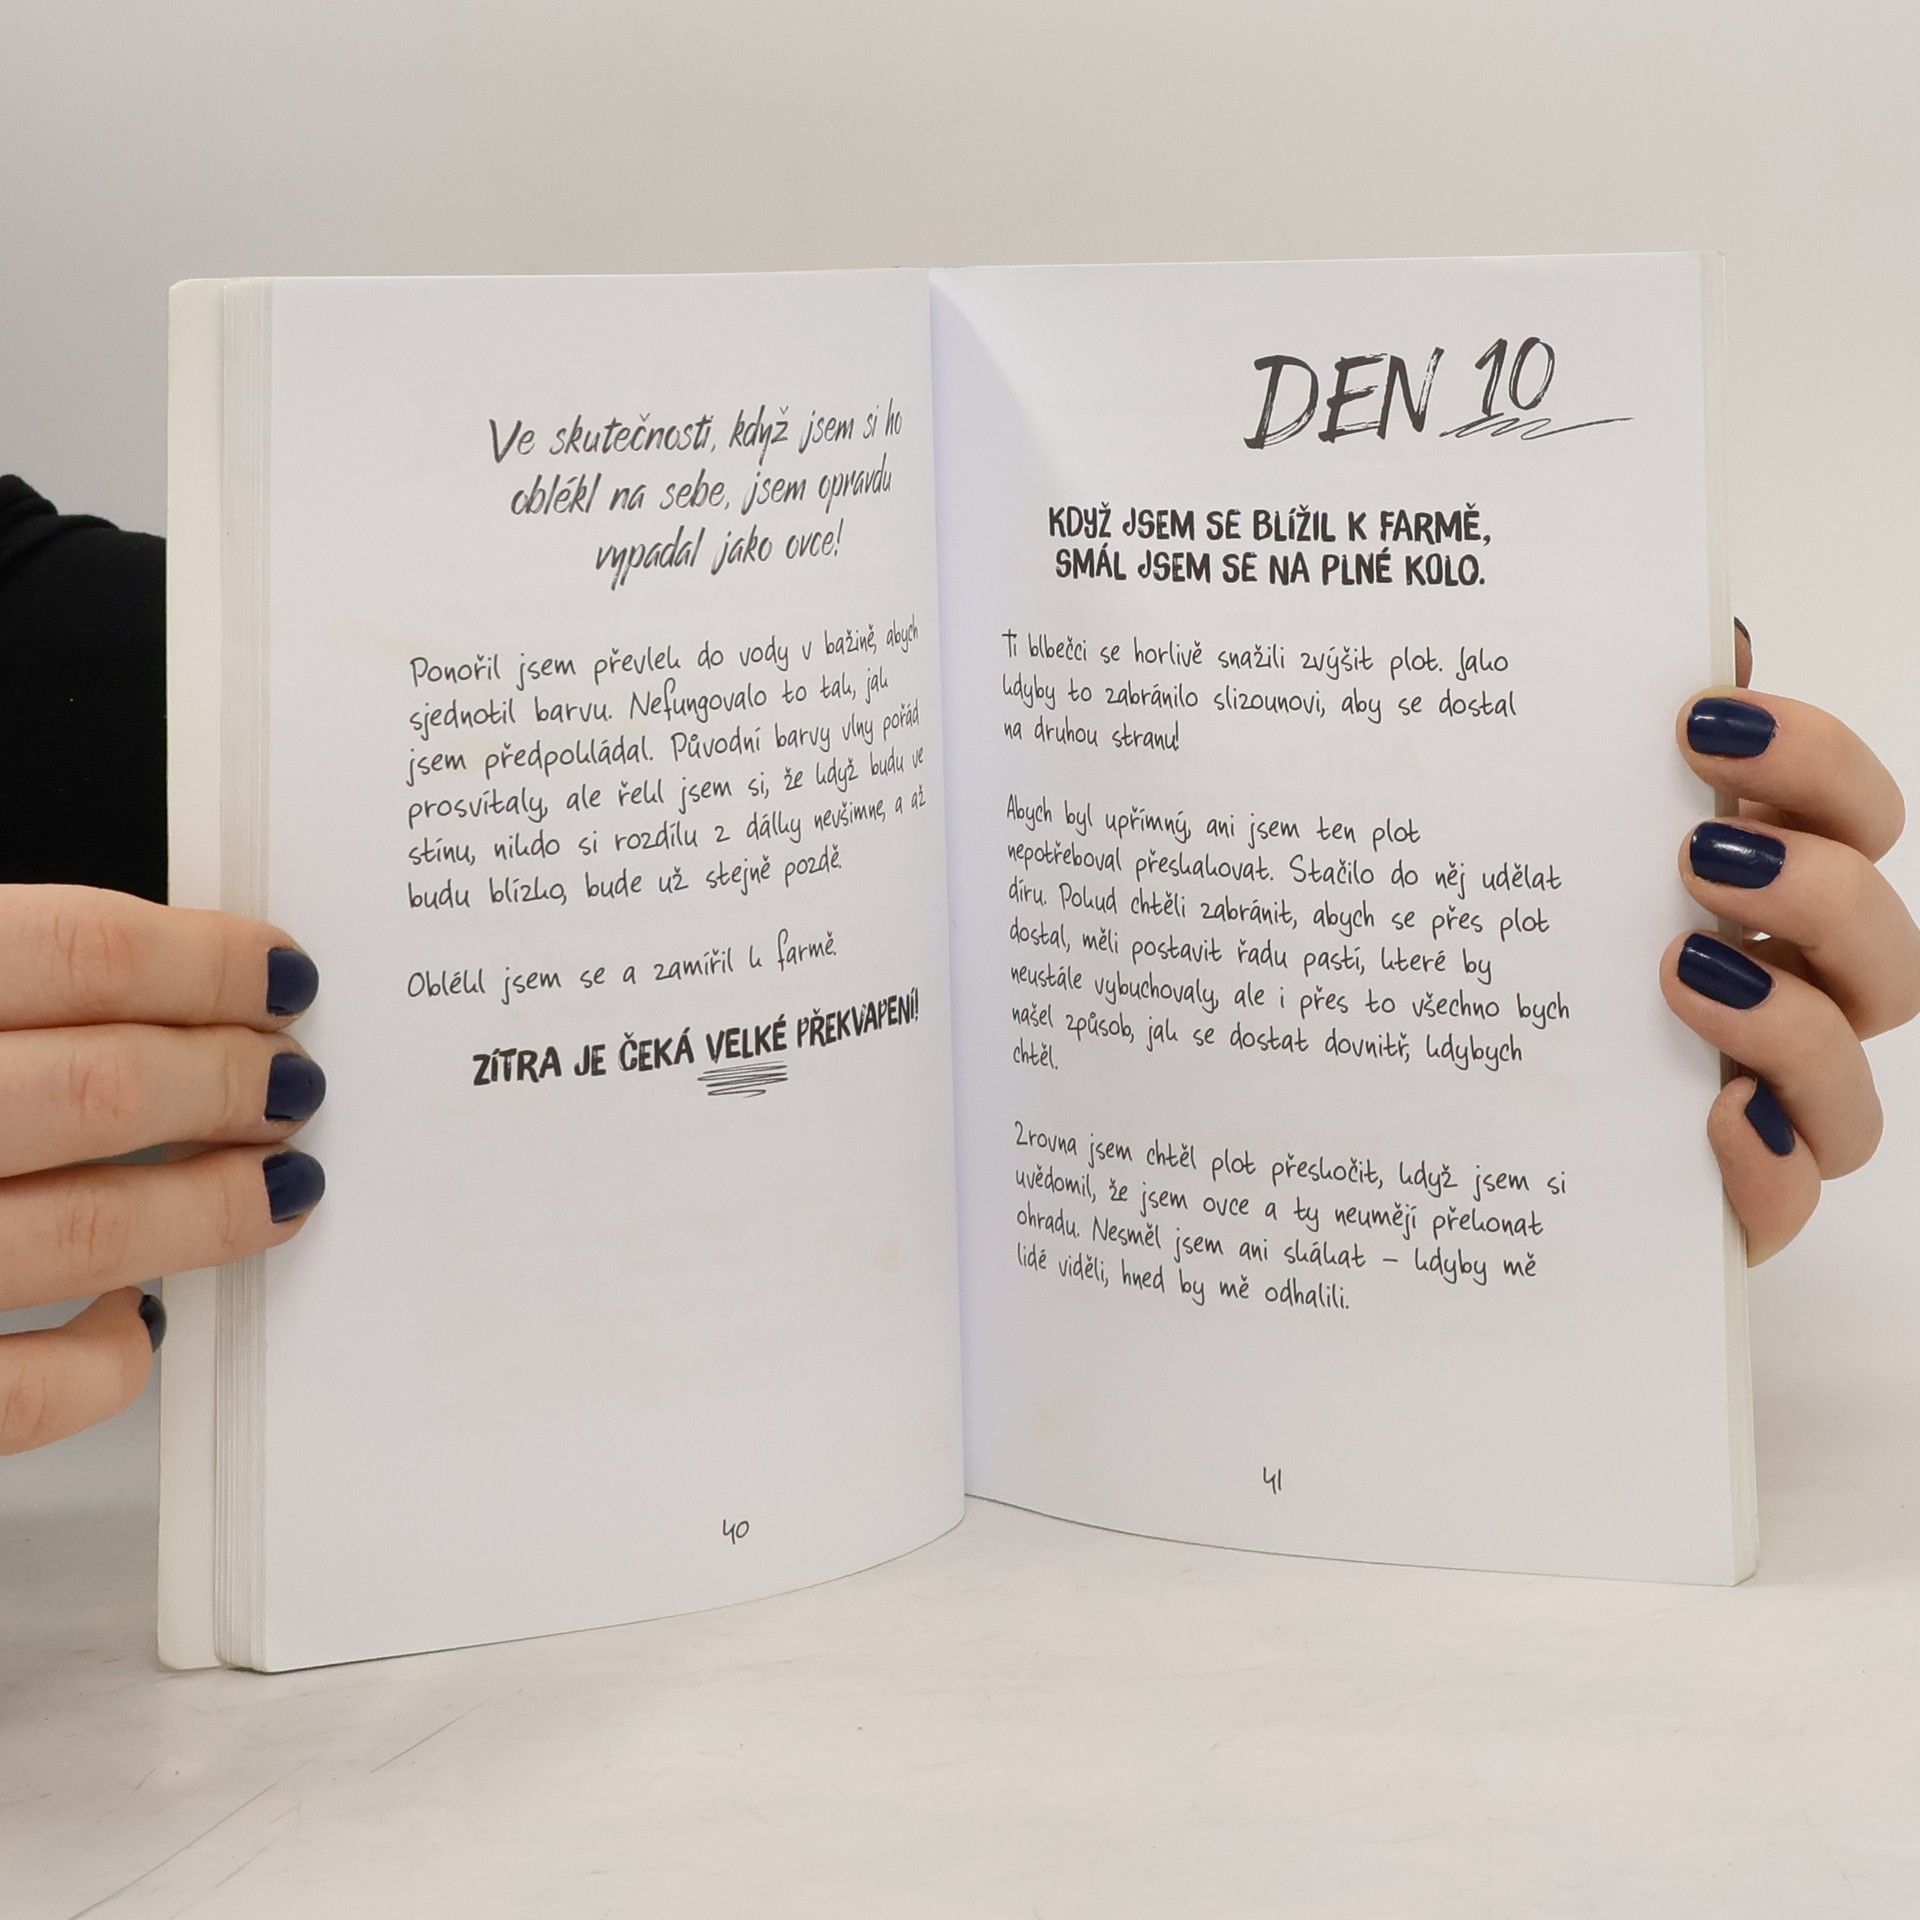 Ve skutečnosti, když jsem si ho
oblékl na sebe, jsem opravdu
vypadal jako ovce!
Ponořil jsem převlek do vody v bažině, abych
sjednotil barvu. Nefungovalo to tak, jak
jsem předpokládal. Původní barvy vlny pořád
prosvítaly, ale řekl jsem si, že když budu ve
stínu, nikdo si rozdílu z dálky nevšimne, a až
budu blízko, bude už stejně pozdě.
Oblékl jsem se a zamířil k farmě.
ZÍTRA JE ČEKÁ VELKÉ PŘEKVAPENÍ!
40
DEN 10
KDYŽ JSEM SE BLÍŽIL K FARMĚ,
SMÁL JSEM SE NA PLNÉ KOLO.
Ti blbečci se horlivě snažili zvýšit plot. Jako
kdyby to zabránilo slizounovi, aby se dostal
na druhou stranu!
Abych byl upřímný, ani jsem ten plot
nepotřeboval přeskakovat. Stačilo do něj udělat
díru. Pokud chtěli zabránit, abych se přes plot
dostal, měli postavit řadu pastí, které by
neustále vybuchovaly, ale i přes to všechno bych
našel způsob, jak se dostat dovnitř, kdybych
chtěl.
Zrovna jsem chtěl plot přeskočit, když jsem si
uvědomil, že jsem ovce a ty neumějí překonat
ohradu. Nesměl jsem ani skákat – kdyby mě
lidé viděli, hned by mě odhalili.
41